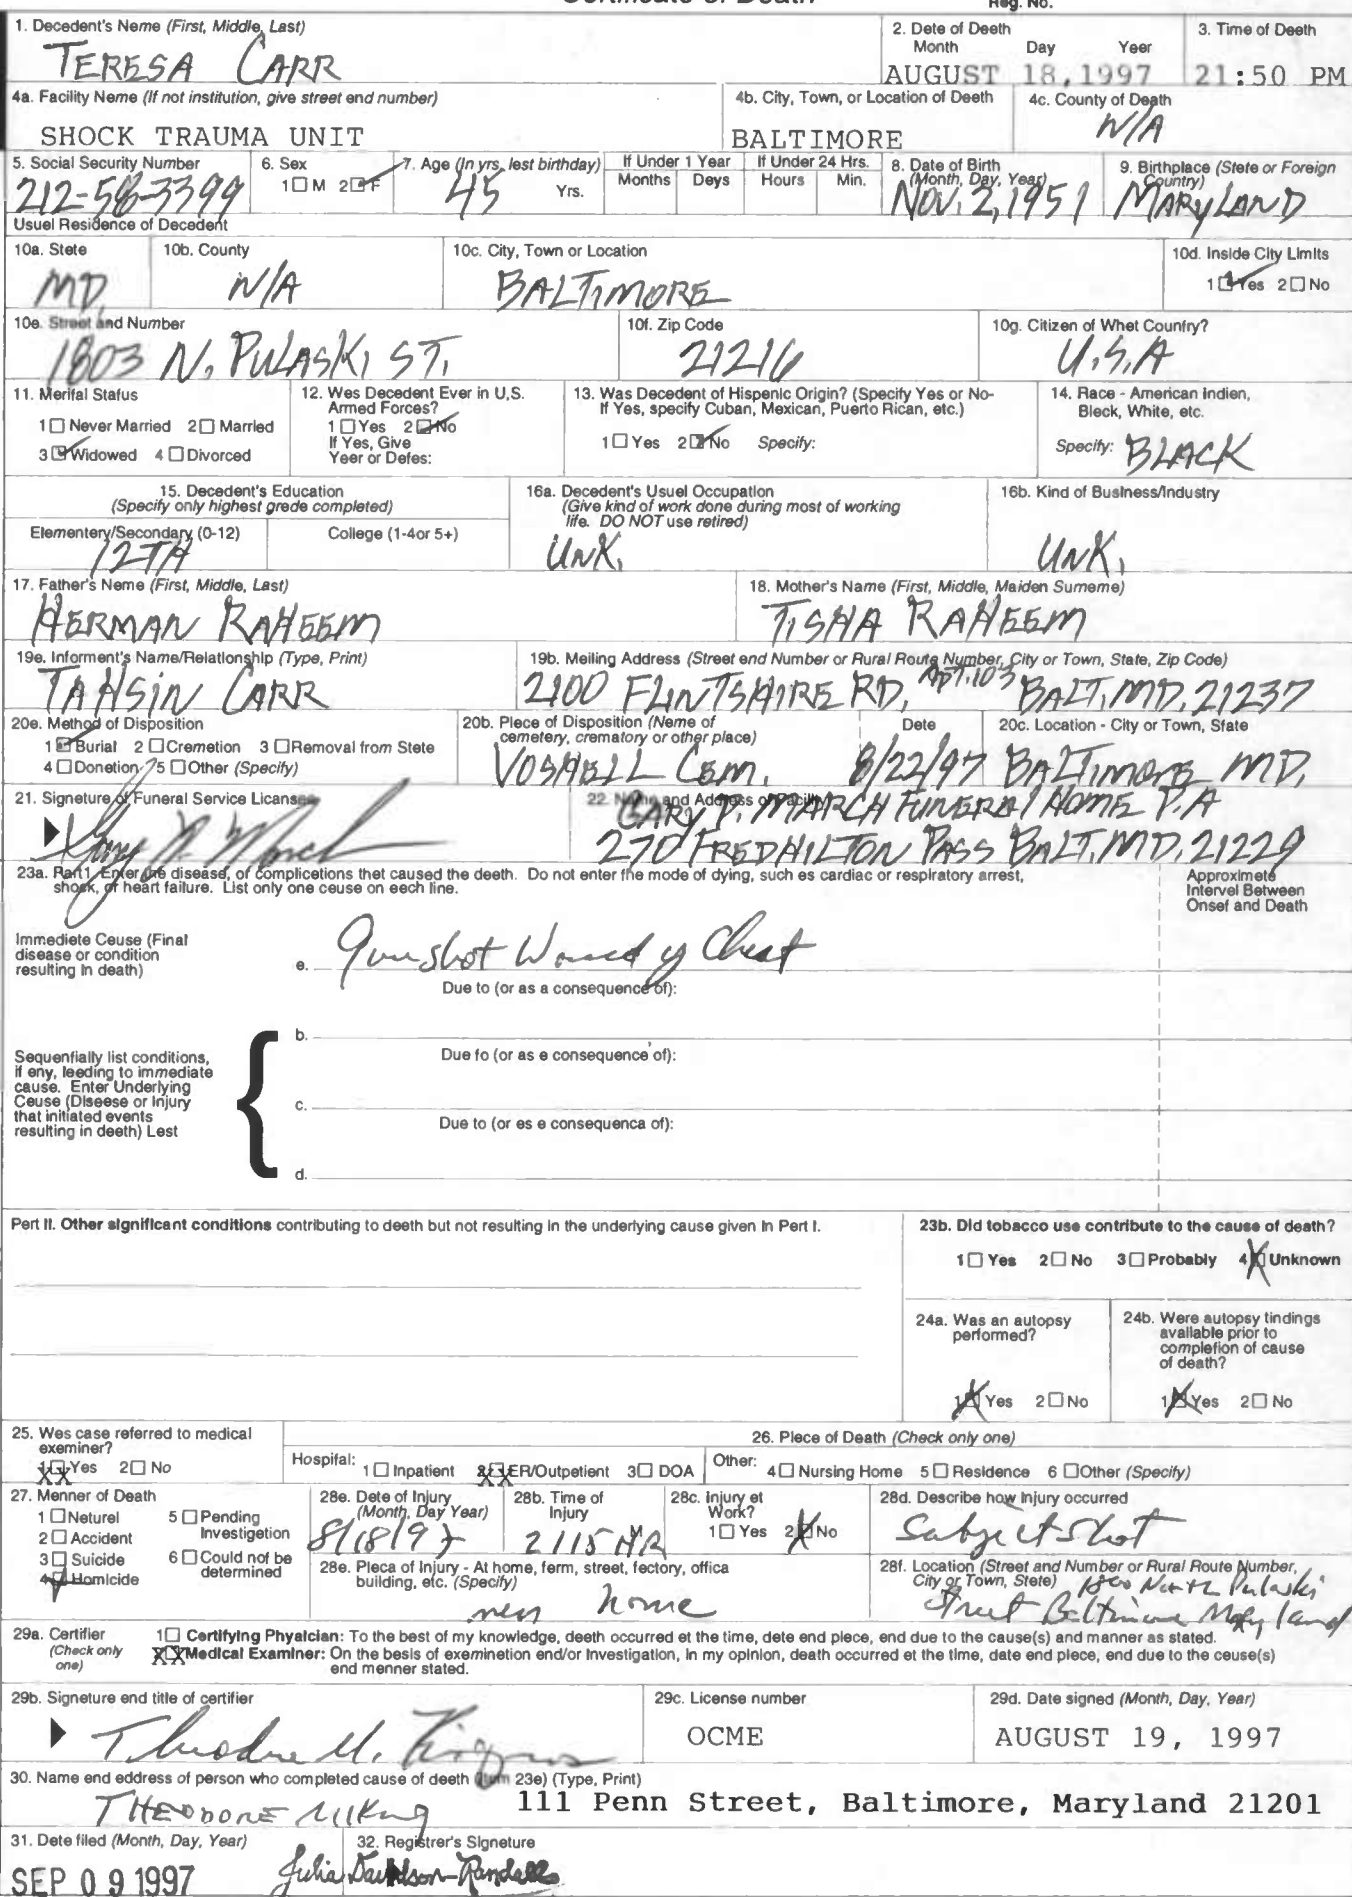 Certificate of Death
Reg. No.
1. Decedent's Neme (First, Middle, Last)
TERESA CARR
2. Dete of Deeth
Month Day Yeer
AUGUST 18,1997
3. Time of Deeth
21:50 PM
4a. Facility Neme (If not institution, give street end number)
SHOCK TRAUMA UNIT
4b. City, Town, or Location of Deeth
BALTIMORE
4c. County of Death
N/A
5. Social Security Number
212-58-3399
6. Sex
1 M 2 F
7. Age (In yrs, lest birthday)
45 Yrs.
If Under 1 Year
Months Deys
If Under 24 Hrs.
Hours Min.
8. Date of Birth
(Month, Day, Year)
NOV. 2, 1951
9. Birthplace (Stete or Foreign
Country)
MARYLAND
Usuel Residence of Decedent
10a. Stete
MD.
10b. County
N/A
10c. City, Town or Location
BALTIMORE
10d. Inside City Limits
1 Yes 2 No
10e. Street and Number
1803 N. PULASKI ST.
10f. Zip Code
21216
10g. Citizen of Whet Counfry?
U.S.A
11. Merifal Status
1 Never Married 2 Married
3 Widowed 4 Divorced
12. Wes Decedent Ever in U.S.
Armed Forces?
1 Yes 2 No
If Yes, Give
Yeer or Defes:
13. Was Decedent of Hispenic Origin? (Specify Yes or No-
If Yes, specify Cuban, Mexican, Puerto Rican, etc.)
1 Yes 2 No Specify:
14. Race - American Indien,
Bleck, White, etc.
Specify: BLACK
15. Decedent's Education
(Specify only highest grede completed)
Elementery/Secondary (0-12)
12TH
College (1-4or 5+)
16a. Decedent's Usuel Occupation
(Give kind of work done during most of working
life. DO NOT use retired)
UNK.
16b. Kind of Business/Industry
UNK.
17. Father's Name (First, Middle, Last)
HERMAN RAHEEM
18. Mother's Name (First, Middle, Maiden Surneme)
TISHA RAHEEM
19e. Informent's Name/Relationship (Type, Print)
TAHSIN CARR
19b. Meiling Address (Street end Number or Rural Route Number, City or Town, State, Zip Code)
2100 FLINTSHIRE RD, APT. 103 BALT. MD. 21237
20e. Method of Disposition
1 Burial 2 Cremetion 3 Removal from Stete
4 Donetion 5 Other (Specify)
20b. Plece of Disposition (Neme of
cemetery, crematory or other place)
VOSHELL CEM.
Date
8/22/97
20c. Location - City or Town, Sfate
BALTIMORE MD.
21. Signature of Funeral Service Licensee
22. Name and Address of Facility
GARY P. MARCH FUNERAL HOME P.A
270 FREDHILTON PASS BALT. MD. 21229
23a. Part 1. Enter the disease, of complicetions thet caused the death. Do not enter fhe mode of dying, such es cardiac or respiratory arrest,
shock, or heart failure. List only one ceuse on eech line.
Approximete
Intervel Between
Onsef and Death
Immediete Ceuse (Final
disease or condition
resulting in death)
e. Gunshot Wound of Chest
Due to (or as a consequence of):
b.
Due fo (or as e consequence of):
Sequenfially list conditions,
if eny, leeding to immediate
cause. Enter Underlying
Ceuse (Diseese or Injury
that initiated events
resulting in deeth) Lest
c.
Due to (or es e consequenca of):
d.
Pert II. Other significant conditions contributing to deeth but not resulting in the underlying cause given in Part I.
23b. Did tobacco use contribute to the cause of death?
1 Yes 2 No 3 Probably 4 Unknown
24a. Was an autopsy
performed?
1 Yes 2 No
24b. Were autopsy tindings
available prior to
complefion of cause
of death?
1 Yes 2 No
25. Wes case referred to medical
exeminer?
1 Yes 2 No
26. Plece of Death (Check only one)
Hospital: 1 Inpatient 2 ER/Outpetient 3 DOA
Other: 4 Nursing Home 5 Residence 6 Other (Specify)
27. Menner of Death
1 Neturel
2 Accident
3 Suicide
4 Homicide
5 Pending
Investigetion
6 Could not be
determined
28e. Dete of Injury
(Month, Day Year)
8/18/97
28b. Time of
Injury
2115 HR
M
28c. Injury et
Work?
1 Yes 2 No
28d. Describe how injury occurred
Subject Shot
28e. Pleca of Injury - At home, ferm, street, fectory, offica
building, etc. (Specify)
near home
28f. Location (Street and Number or Rural Route Number,
City or Town, Stete) 1800 North Pulaski
Street Baltimore Maryland
29a. Certifier
(Check only
one)
1 Certifying Physician: To the best of my knowledge, deeth occurred et the time, dete end plece, end due to the cause(s) and manner as stated.
Medical Examiner: On the besis of exeminetion end/or Investigation, in my opinion, death occurred et the time, date end plece, end due to the ceuse(s)
end menner steted.
29b. Signeture end title of certifier
Theodore M. King
29c. License number
OCME
29d. Date signed (Month, Day, Year)
AUGUST 19, 1997
30. Name end eddress of person who completed cause of deeth (Item 23e) (Type, Print)
THEODORE M King 111 Penn Street, Baltimore, Maryland 21201
31. Dete filed (Month, Day, Year)
SEP 09 1997
32. Registrer's Signeture
Julia Davidson-Randall